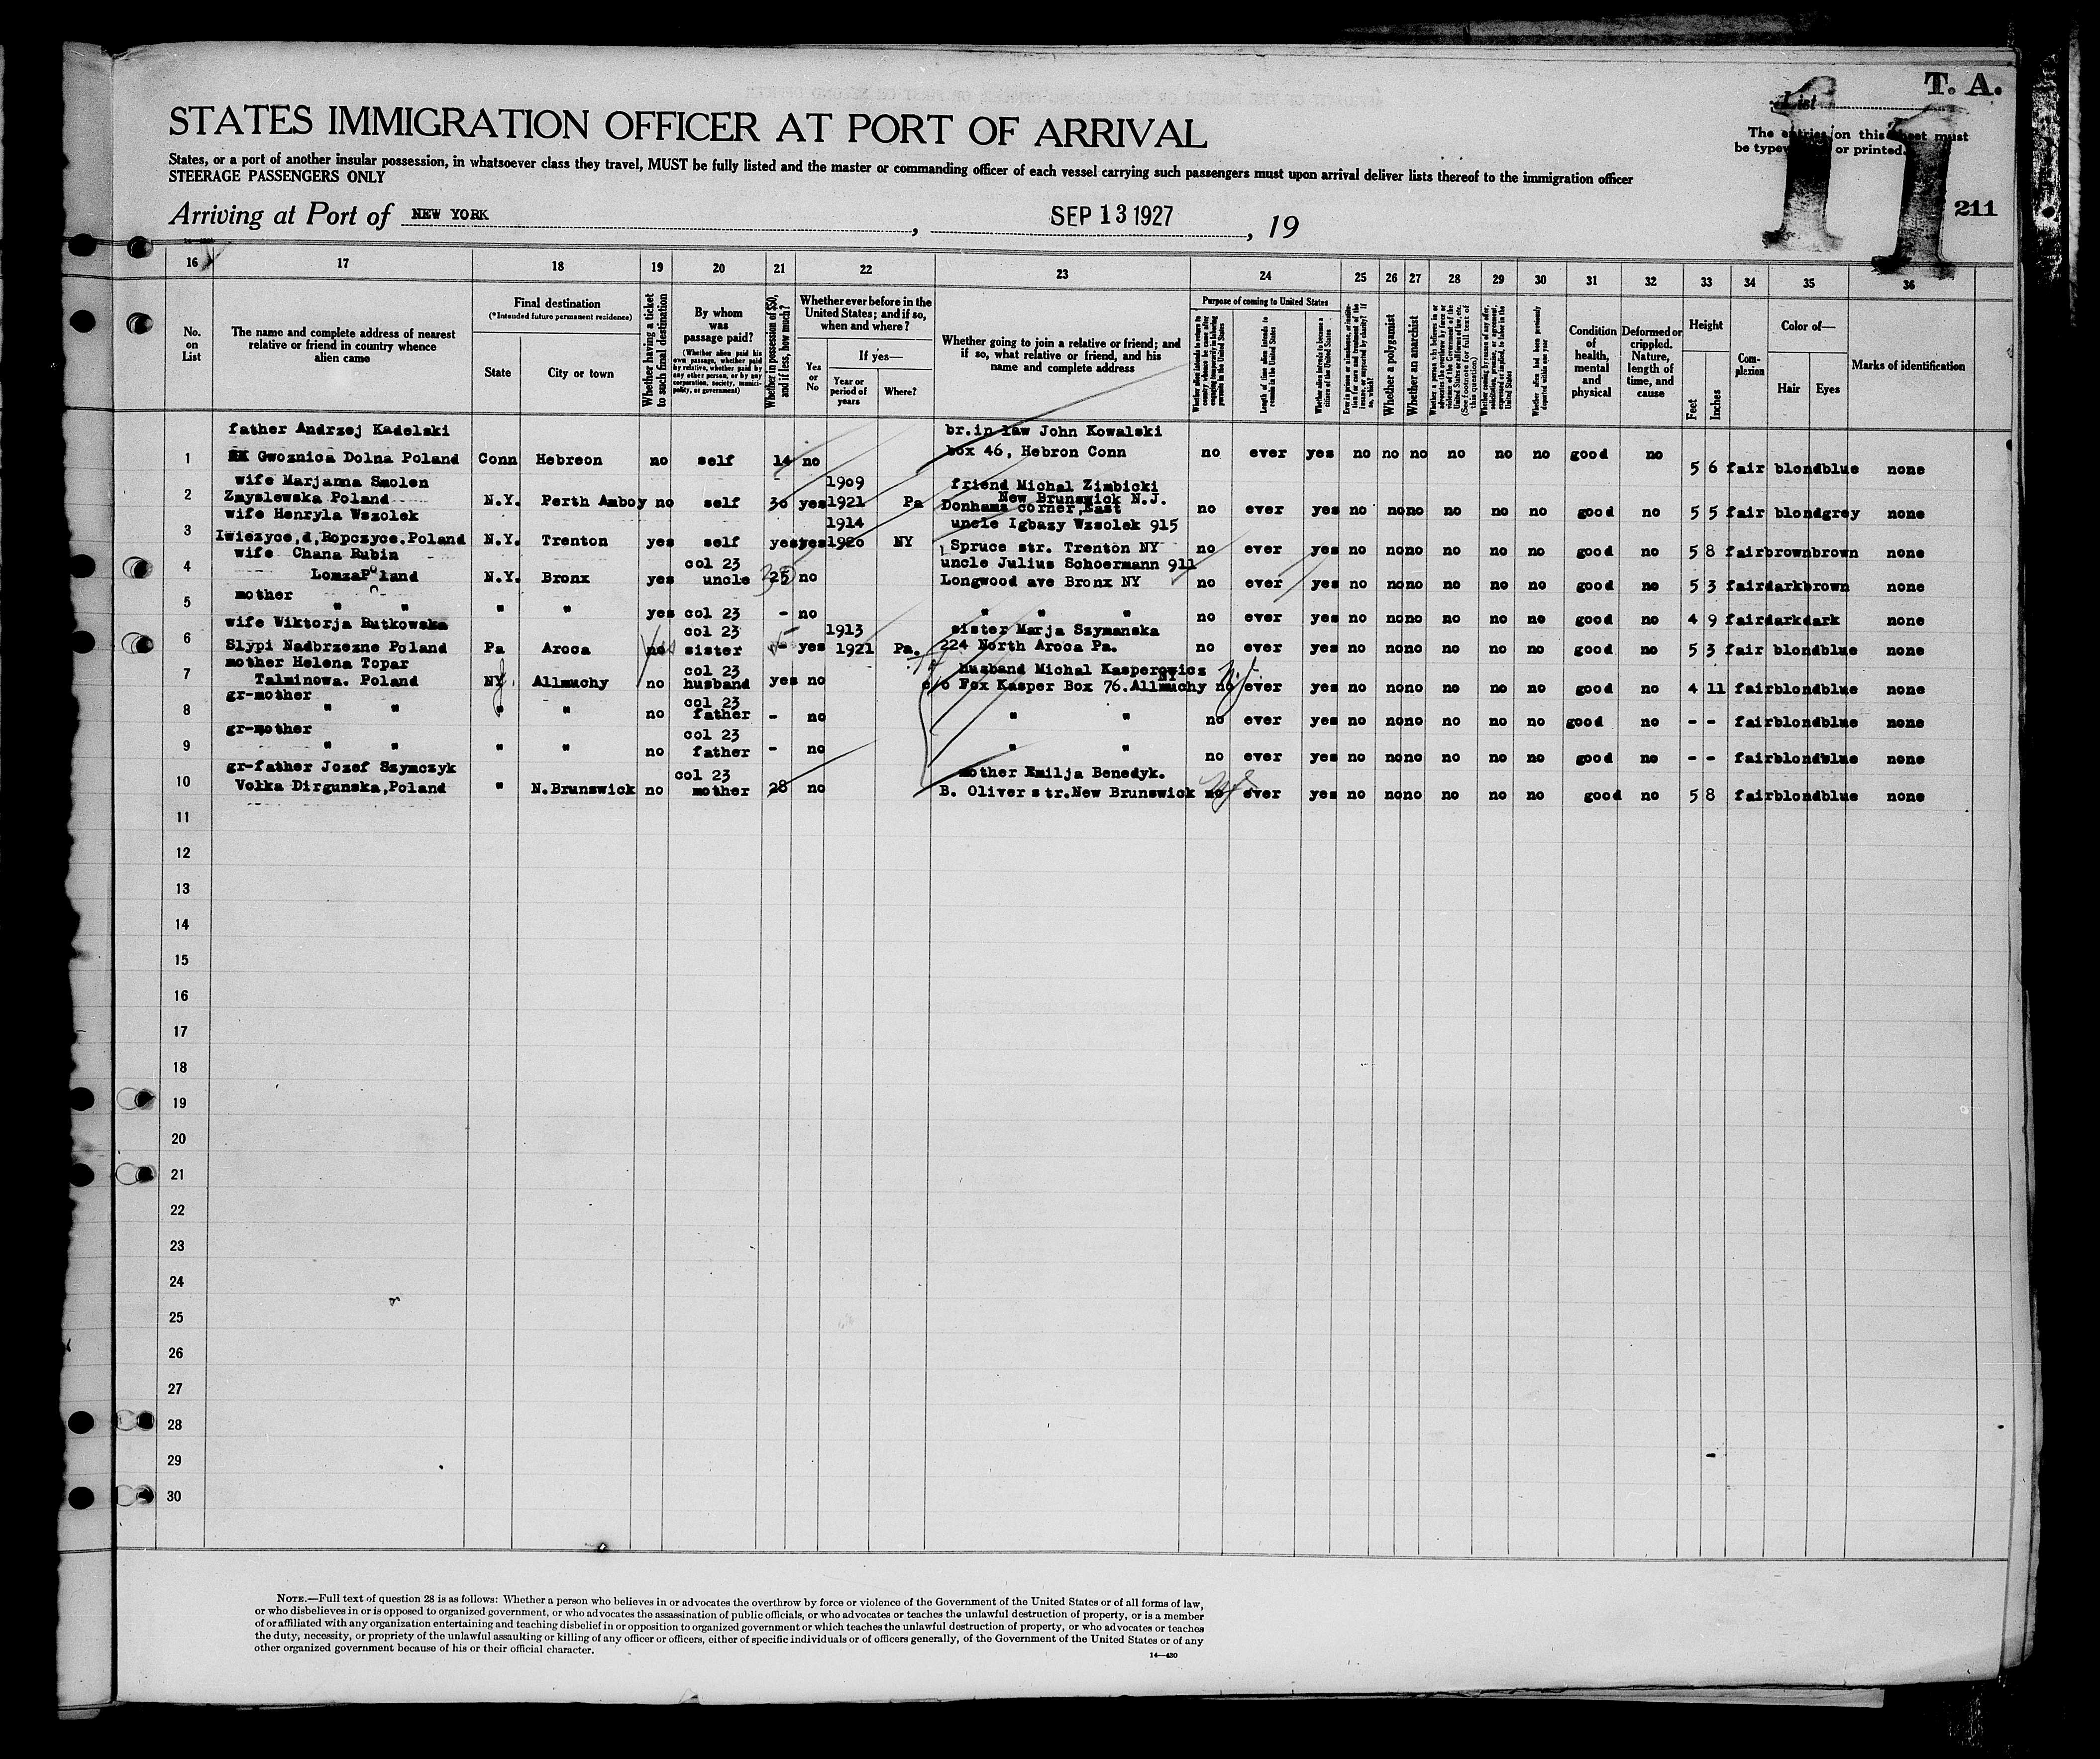 T. A.
List
STATES IMMIGRATION OFFICER AT PORT OF ARRIVAL
The entries on this sheet must
be typewritten or printed.
11
States, or a port of another insular possession, in whatsoever class they travel, MUST be fully listed and the master or commanding officer of each vessel carrying such passengers must upon arrival deliver lists thereof to the immigration officer
STEERAGE PASSENGERS ONLY
Arriving at Port of NEW YORK , SEP 13 1927 , 19
211
16 17 18 19 20 21 22 23 24 25 26 27 28 29 30 31 32 33 34 35 36
No. on List
The name and complete address of nearest relative or friend in country whence alien came
Final destination
(*Intended future permanent residence)
State
City or town
Whether having a ticket to such final destination
By whom was passage paid?
(Whether alien paid his own passage, whether paid by relative, whether paid by any other person, or by any corporation, society, municipality, or government)
Whether in possession of $50, and if less, how much?
Whether ever before in the United States; and if so, when and where?
Yes or No
If yes—
Year or period of years
Where?
Whether going to join a relative or friend; and if so, what relative or friend, and his name and complete address
Purpose of coming to United States
Length of time alien intends to remain in the United States
Whether alien intends to become a citizen of the United States
Whether a polygamist
Whether an anarchist
Whether alien had been previously deported within one year
Condition of health, mental and physical
Deformed or crippled. Nature, length of time, and cause
Height
Feet
Inches
Complexion
Color of—
Hair
Eyes
Marks of identification
father Andrzej Kadelski br.in law John Kowalski
1 Gwoznica Dolna Poland Conn Hebreon no self 14 no box 46, Hebron Conn no ever yes no no no no no no good no 5 6 fair blond blue none
wife Marjanna Smolen 1909 friend Michal Zimbicki
2 Zmyslewska Poland N.Y. Perth Amboy no self 30 yes 1921 Pa New Brunswick N.J. Donhams corner,East no ever yes no no no no no no good no 5 5 fair blond grey none
wife Henryla Wszolek 1914 uncle Igbazy Wzsolek 915
3 Iwiezyce,d,Ropczyce.Poland N.Y. Trenton yes self yes yes 1920 NY Spruce str. Trenton NY no ever yes no no no no no no good no 5 8 fair brown brown none
wife Chana Rubin col 23 uncle Julius Schoermann 911
4 Lomza Poland N.Y. Bronx yes uncle 25 no Longwood ave Bronx NY no ever yes no no no no no no good no 5 3 fair dark brown none
mother
5 " " " " yes col 23 - no " " " no ever yes no no no no no no good no 4 9 fair dark dark none
wife Wiktorja Rutkowska col 23 1913 sister Marja Szymanska
6 Slypi Nadbrzezne Poland Pa Aroca no yes sister - yes 1921 Pa. 224 North Aroca Pa. no ever yes no no no no no no good no 5 3 fair blond blue none
mother Helena Topar col 23 husband Michal Kasperowics
7 Talminowa. Poland NY Allmuchy no husband yes no c/o Fox Kasper Box 76.Allmuchy NY no ever yes no no no no no no good no 4 11 fair blond blue none
gr-mother col 23
8 " " " " no father - no " " no ever yes no no no no no no good no - - fair blond blue none
gr-mother col 23
9 " " " " no father - no " " no ever yes no no no no no no good no - - fair blond blue none
gr-father Jozef Szymczyk col 23 mother Emilja Benedyk.
10 Volka Dirgunska,Poland " N.Brunswick no mother 28 no B. Oliver str.New Brunswick no ever yes no no no no no no good no 5 8 fair blond blue none
11
12
13
14
15
16
17
18
19
20
21
22
23
24
25
26
27
28
29
30
NOTE.—Full text of question 28 is as follows: Whether a person who believes in or advocates the overthrow by force or violence of the Government of the United States or of all forms of law,
or who disbelieves in or is opposed to organized government, or who advocates the assassination of public officials, or who advocates or teaches the unlawful destruction of property, or is a member
of or affiliated with any organization entertaining and teaching disbelief in or opposition to organized government or which teaches the unlawful destruction of property, or who advocates or teaches
the duty, necessity, or propriety of the unlawful assaulting or killing of any officer or officers, either of specific individuals or of officers generally, of the Government of the United States or of any
other organized government because of his or their official character.
14—430